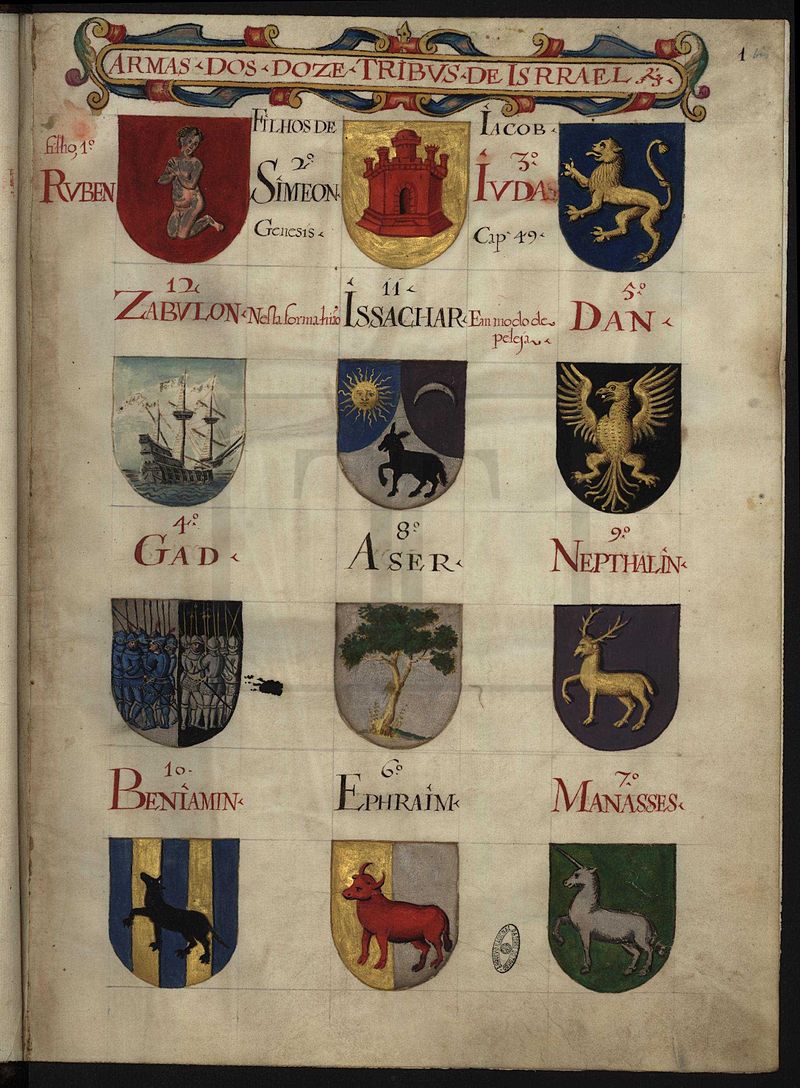 ARMAS DOS DOZE TRIBVS DE ISRRAEL
1
filho 1º
RVBEN
FILHOS DE
2º
SIMEON
Genesis
IACOB
3º
IVDAS
Cap 49
12
ZABVLON
Nesta forma hião
11
ISSACHAR
Em modo de
peleja
5º
DAN
4º
GAD
8º
ASER
9º
NEPTHALIN
10
BENIAMIN
6º
EPHRAIM
7º
MANASSES